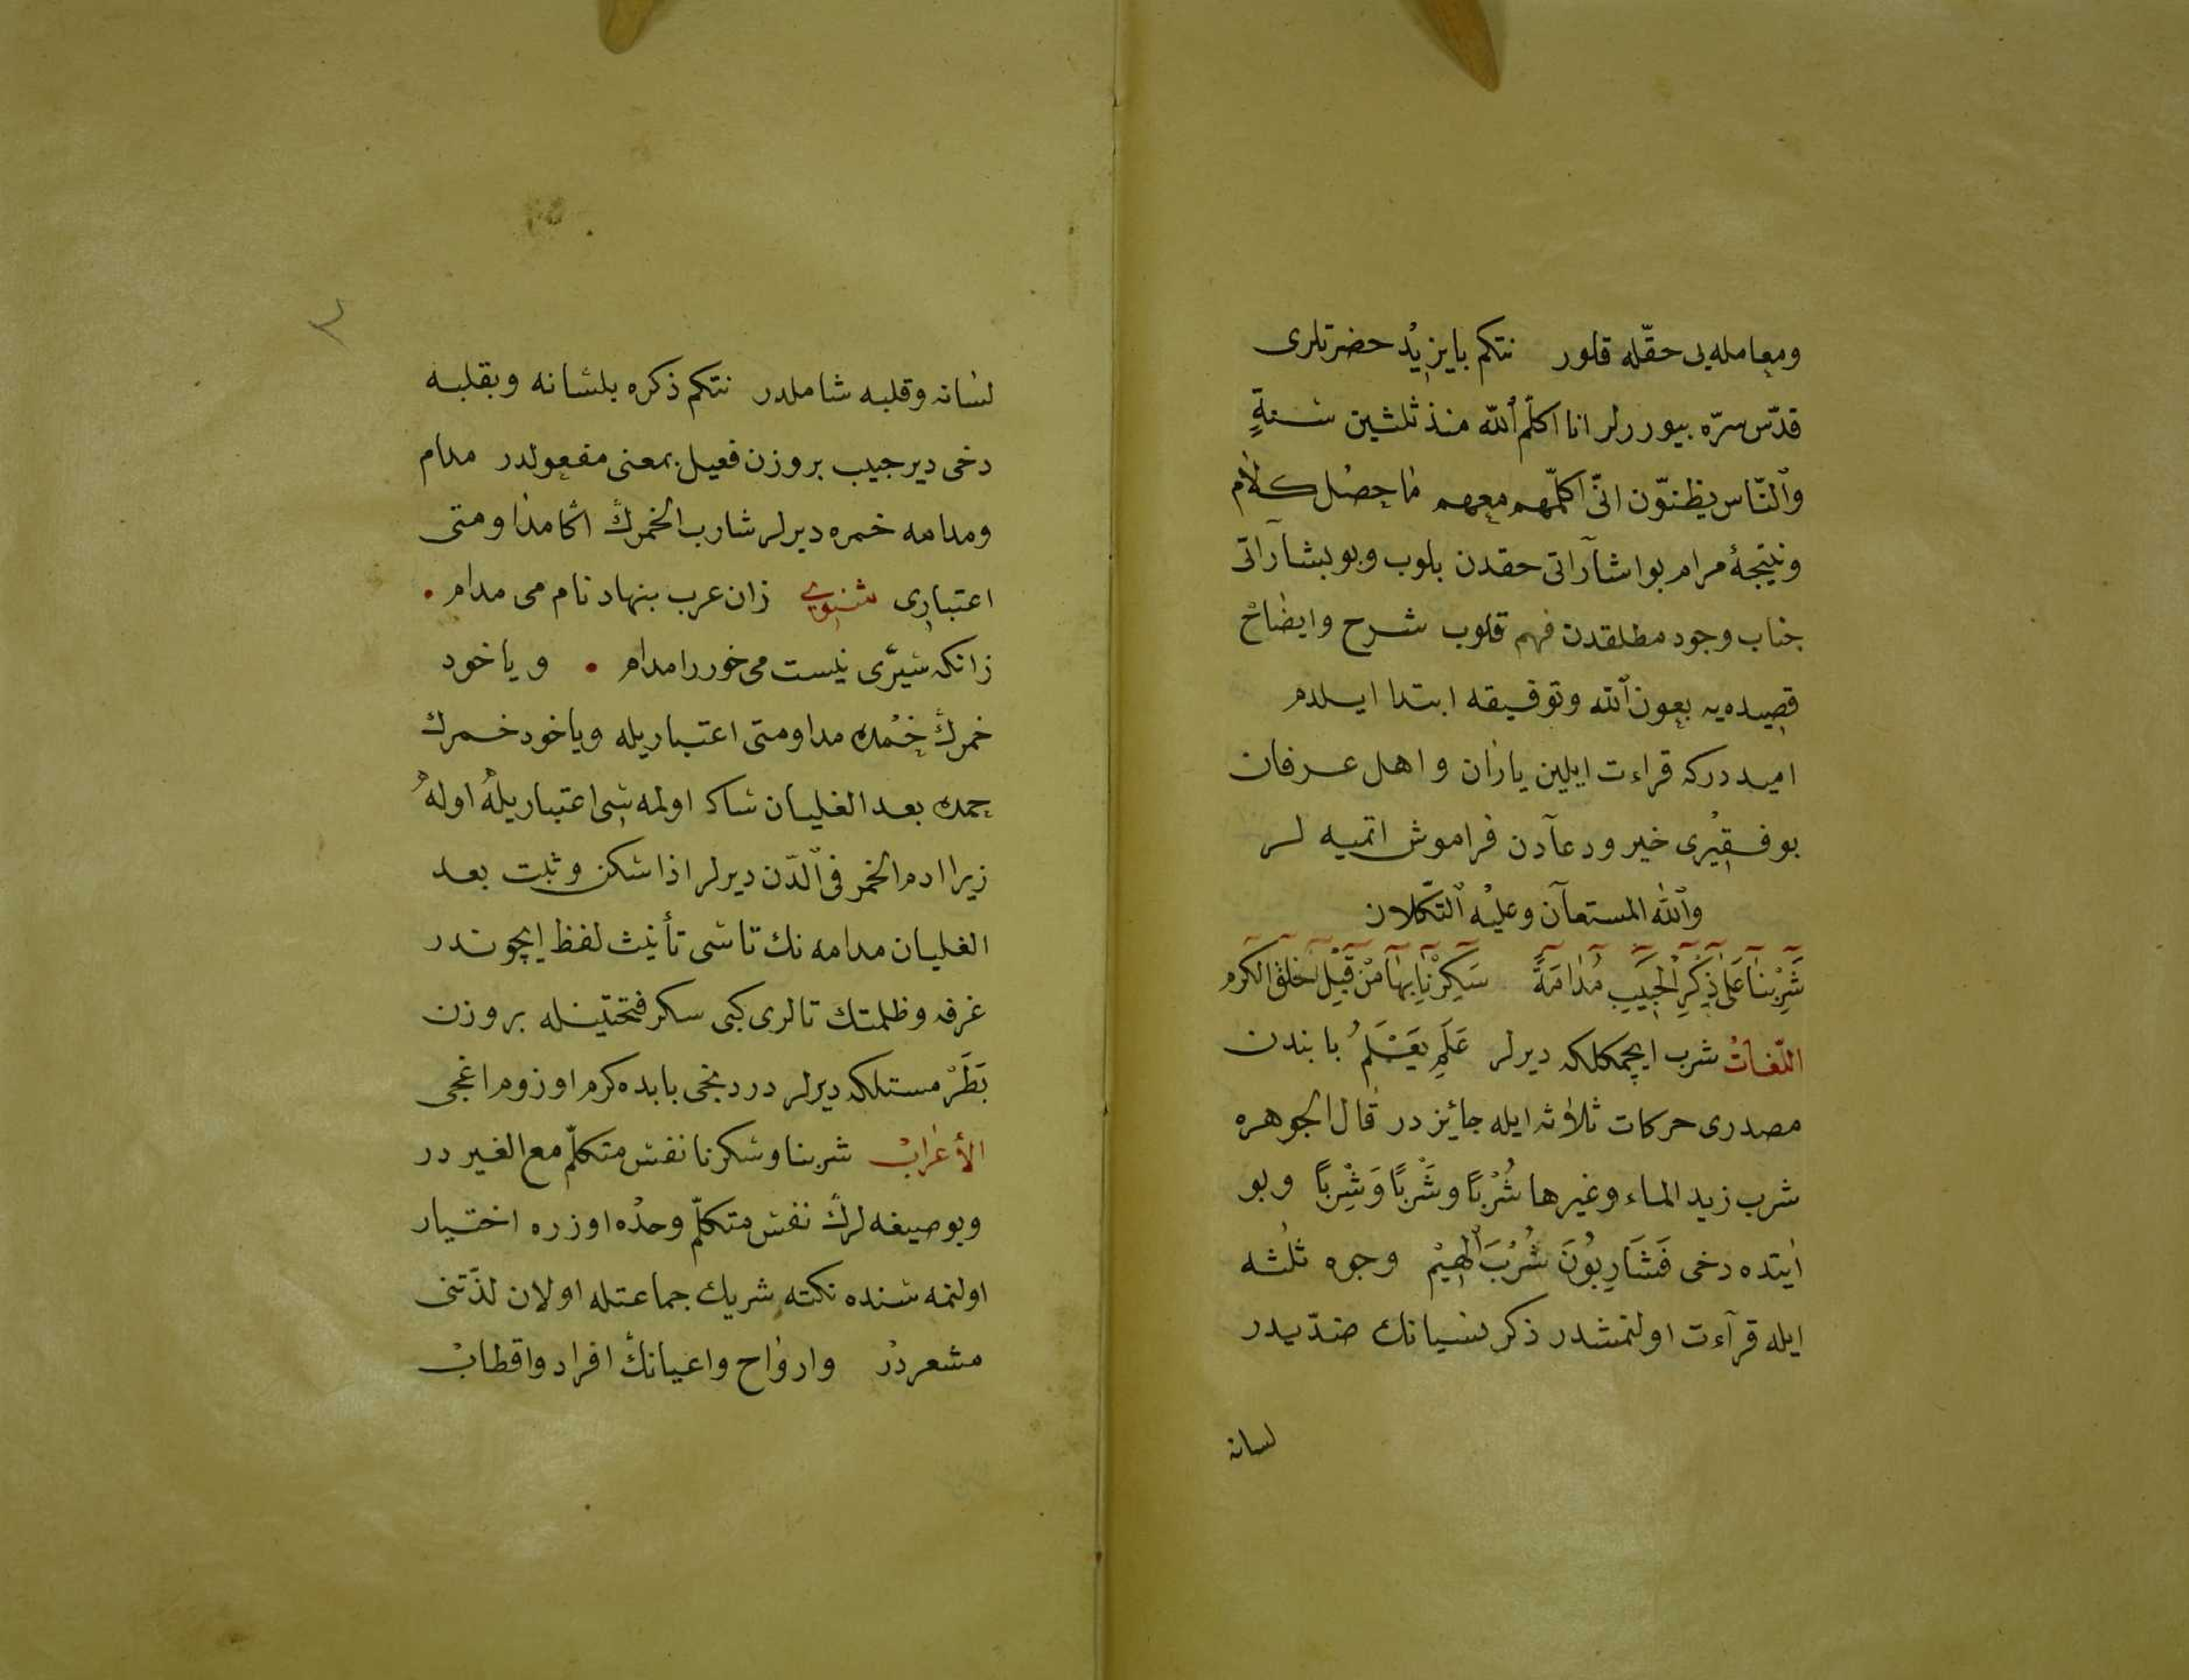 ومعامله‌یی حقّله قلور نتکم بایزیدْ حضرتلری
قدّس سرّه بیوررلر انا اکلّم ٱللّه منذ ثلثین سنةٍ
وٱلنّاس یظنوّن انّی اکلّمهم معهم ما حصل کلام
ونتیجهٔ مرام بو اشآراتی حقدن بلوب وبو بشآراتی
جناب وجود مطلقدن فهم قلوب شرح وایضاح
قصیده‌یه بعون ٱللّه وتوفیقه ابتدا ایلدم
امیددرکه قراءت ایلین یاران و اهل عرفان
بو فقیْری خیر ودعآدن فراموش اتمیه لر
وٱللّه المستعآن وعلیْه ٱلتّکلان
شَرِبْنَا عَلَی ذِکْرِ الْحَبِیبِ مُدَامَةً سَکِرْنَا بِهَا مِنْ قَبْلِ اَنْ یُخْلَقَ الکرم
اللّغاتْ شرب ایچمکلکه دیرلر عَلِمَ یَعْلَمُ بابندن
مصدری حرکات ثلاثه ایله جائز در قال الجوهره
شرب زید الماء وغیرها شُرْبًا وشَرْبًا وَشِرْبًا وبو
ایتده دخی فَشَارِبُونَ شُرْبَ ٱلْهِیْمِ وجوه ثلثه
ایله قرآءت اولنمشدر ذکر نسیانك ضدّیدر
لسانه
لسانه وقلبه شاملدر نتکم ذکره بلسانه وبقلبه
دخی دیر حبیب بروزن فعیل بمعنی مفعولدر مدام
ومدامه خمره دیرلر شارب الخمرك اڭا مداومتی
اعتباری مثنوی زان عرب بنهاد نام می مدام •
زانکه سیرّی نیست می خور را مدام • ویا خود
خمرك خمده مداومتی اعتباریله ویاخود خمرك
خمده بعد الغلیان ساکن اولمه سی اعتباریله اوله
زیرا ادم الخمر فی ٱلدّن دیرلر اذا سکن وثبت بعد
الغلیان مدامه نك تاسی تأنیث لفظ ایچوندر
غرفه وظلمتك تالری کبی سکر فتحتیْنله بروزن
بَطَرْ مستلکه دیرلر دردنجی بابده کرم اوزوم اغجی
الأعرابْ شربنا وسکرنا نفس متکلّم مع الغیر در
وبو صیغه لرك نفس متکلّم وحده اوزره اختیار
اولنمه سنده نکته شریك جماعتله اولان لذّتنی
مشعردر وارواح واعیانك افراد واقطاب